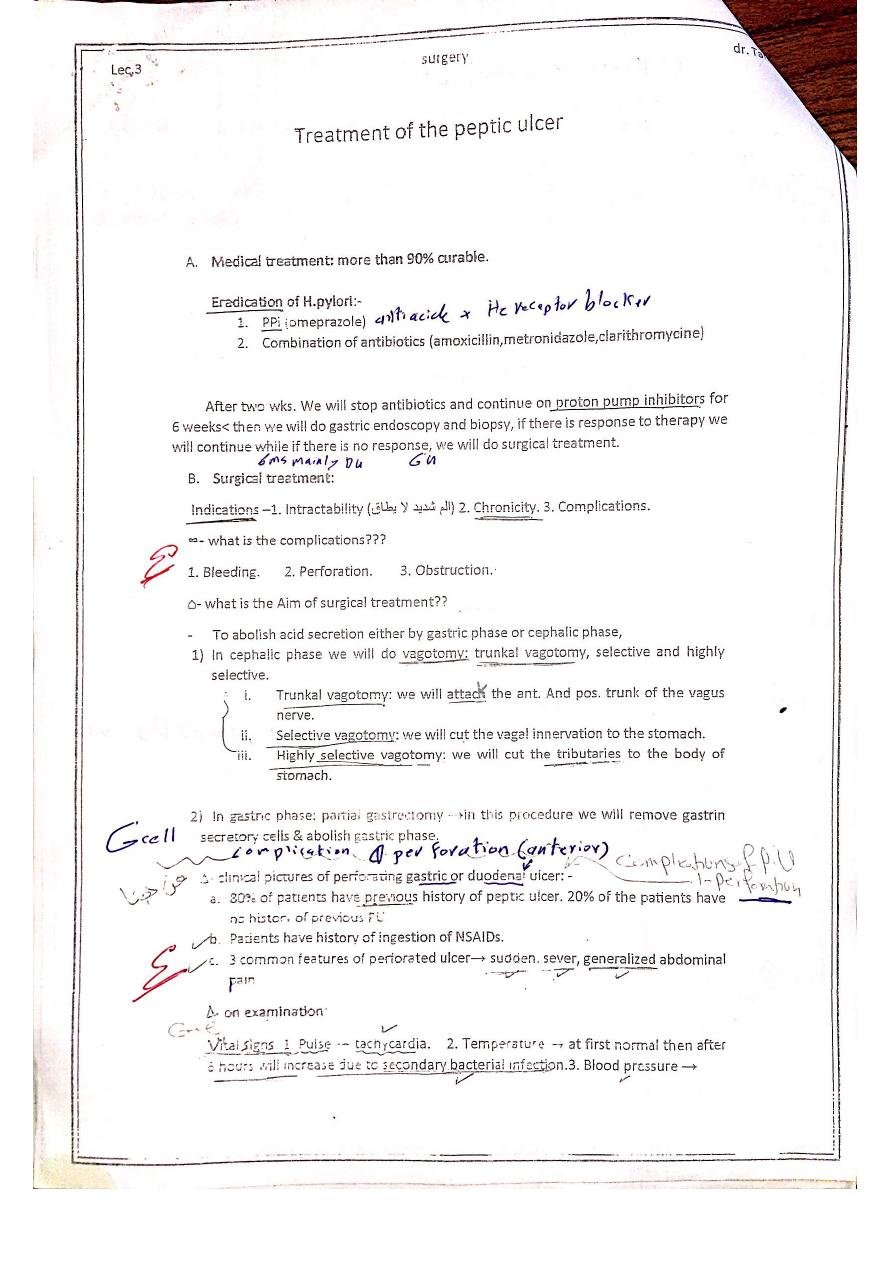 Lec,3
surgery
dr.
Treatment of the peptic ulcer
A. Medical treatment: more than 90% curable.
Eradication of H.pylori:-
1. PPi (omeprazole) antiacide receptor blocker
2. Combination of antibiotics (amoxicillin,metronidazole,clarithromycine)
After two wks. We will stop antibiotics and continue on proton pump inhibitors for
6 weeks< then we will do gastric endoscopy and biopsy, if there is response to therapy we
will continue while if there is no response, we will do surgical treatment.
mainly DU GU
B. Surgical treatment:
Indications –1. Intractability (الم شديد لا يطاق) 2. Chronicity. 3. Complications.
∞- what is the complications???
1. Bleeding. 2. Perforation. 3. Obstruction.
∆- what is the Aim of surgical treatment??
- To abolish acid secretion either by gastric phase or cephalic phase,
1) In cephalic phase we will do vagotomy: trunkal vagotomy, selective and highly
selective.
i. Trunkal vagotomy: we will attack the ant. And pos. trunk of the vagus
nerve.
ii. Selective vagotomy: we will cut the vagal innervation to the stomach.
iii. Highly selective vagotomy: we will cut the tributaries to the body of
stomach.
2) In gastric phase: partial gastrectomy →in this procedure we will remove gastrin
G cell
secretory cells & abolish gastric phase.
complication perforation (anterior)
Complications of P.U
1-Perforation
∆- clinical pictures of perforating gastric or duodenal ulcer: -
a. 80% of patients have previous history of peptic ulcer. 20% of the patients have
no history of previous PU
b. Patients have history of ingestion of NSAIDs.
c. 3 common features of perforated ulcer→ sudden, sever, generalized abdominal
pain
∆- on examination
Vital signs 1 Pulse -- tachycardia. 2. Temperature → at first normal then after
hours will increase due to secondary bacterial infection.3. Blood pressure →